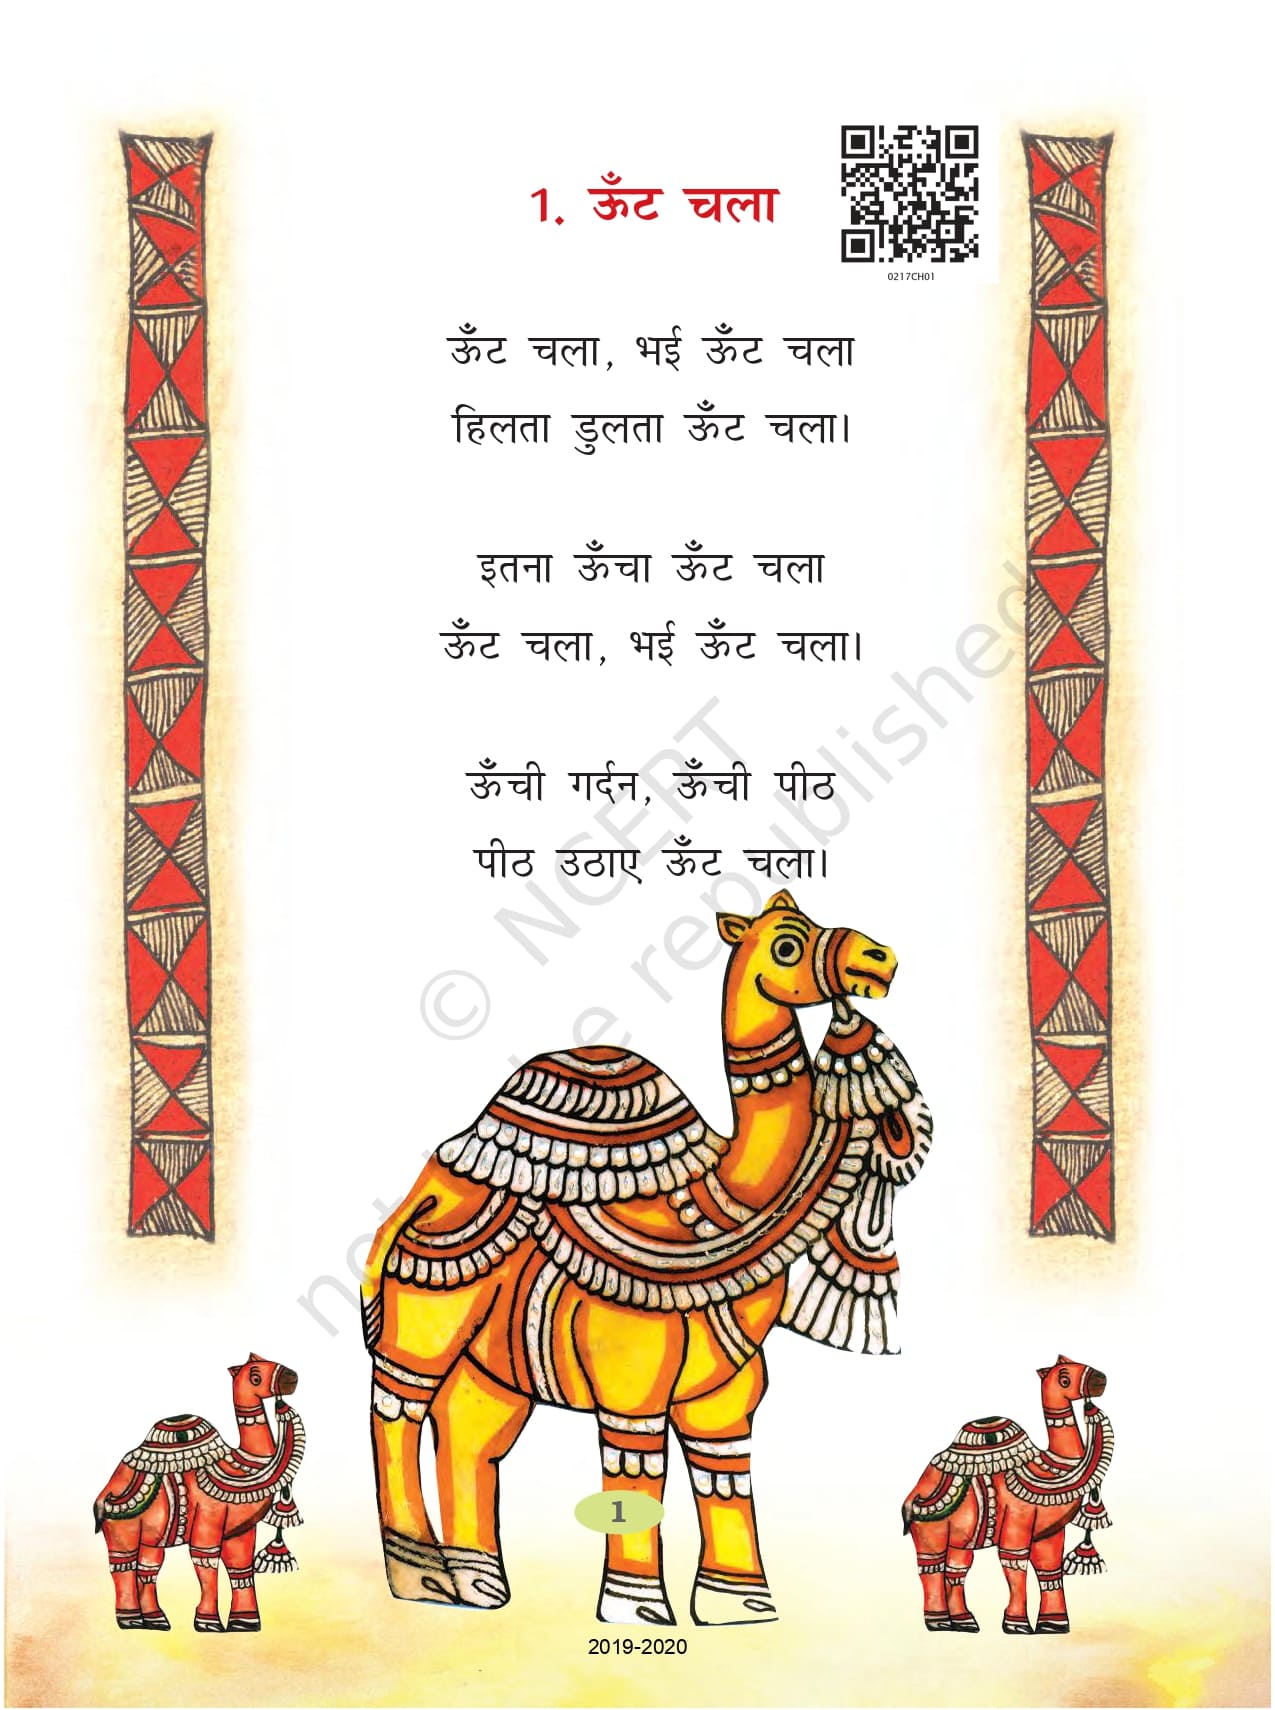 1. ऊँट चला
0217CH01
ऊँट चला, भई ऊँट चला
हिलता डुलता ऊँट चला।
इतना ऊँचा ऊँट चला
ऊँट चला, भई ऊँट चला।
ऊँची गर्दन, ऊँची पीठ
पीठ उठाए ऊँट चला।
© NCERT
not to be republished
1
2019-2020